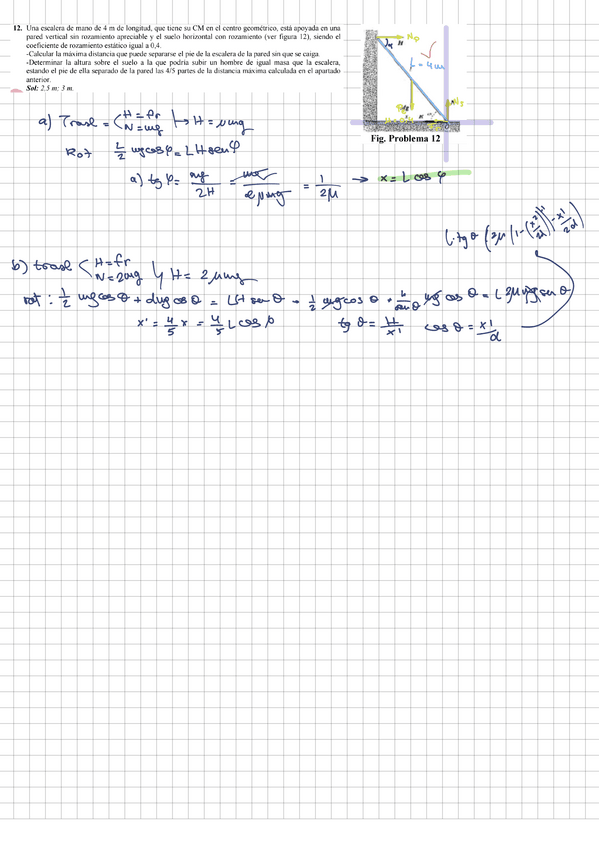 12. Una escalera de mano de 4 m de longitud, que tiene su CM en el centro geométrico, está apoyada en una
pared vertical sin rozamiento apreciable y el suelo horizontal con rozamiento (ver figura 12), siendo el
coeficiente de rozamiento estático igual a 0,4.
-Calcular la máxima distancia que puede separarse el pie de la escalera de la pared sin que se caiga.
-Determinar la altura sobre el suelo a la que podría subir un hombre de igual masa que la escalera,
estando el pie de ella separado de la pared las 4/5 partes de la distancia máxima calculada en el apartado
anterior.
Sol: 2.5 m: 3 m.
Fig. Problema 12
a) Trasl = { H = fr
N = mg
↦ H = μmg
Rot L/2 mg cos φ = L H sen φ
a) tg φ = mg/2H = mg/2μmg = 1/2μ → x = L cos φ
b) trasl { H = fr
N = 2mg
H = 2μmg
rot: 1/2 mg cos θ + dmg cos θ = LH sen θ
x' = 4/5 x = 4/5 L cos φ
tg θ = H/x'